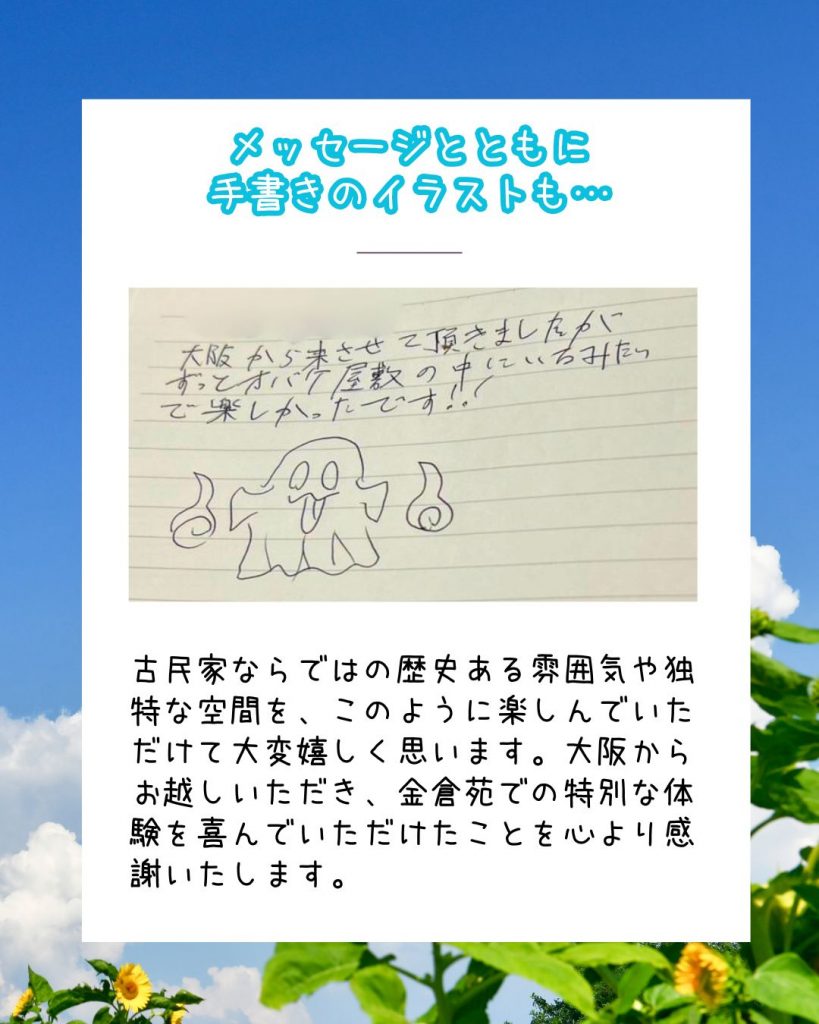 メッセージとともに
手書きのイラストも…
大阪から来させて頂きましたが
ずっとオバケ屋敷の中にいるみたい
で楽しかったです!!
古民家ならではの歴史ある雰囲気や独
特な空間を、このように楽しんでいた
だけて大変嬉しく思います。大阪から
お越しいただき、金倉苑での特別な体
験を喜んでいただけたことを心より感
謝いたします。